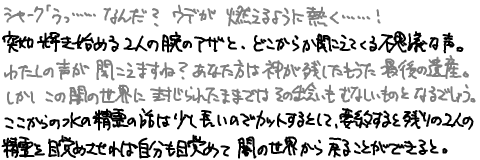 シャーク「うっ…… なんだ？ ウデが 燃えるように熱く……！
突如輝き始める2人の腕のアザと、どこからか聞こえてくる不思議な声。
わたしの声が 聞こえますね？ あなた方は神が残したもうた 最後の遺産。
しかし この闇の世界に 封じられたままでは その出会いも むなしいものと なるでしょう。
ここからの水の精霊の話は少し長いのでカットするとして、要約すると残りの2人の
精霊を目覚めさせれば自分も目覚めて 闇の世界から 戻ることができると。